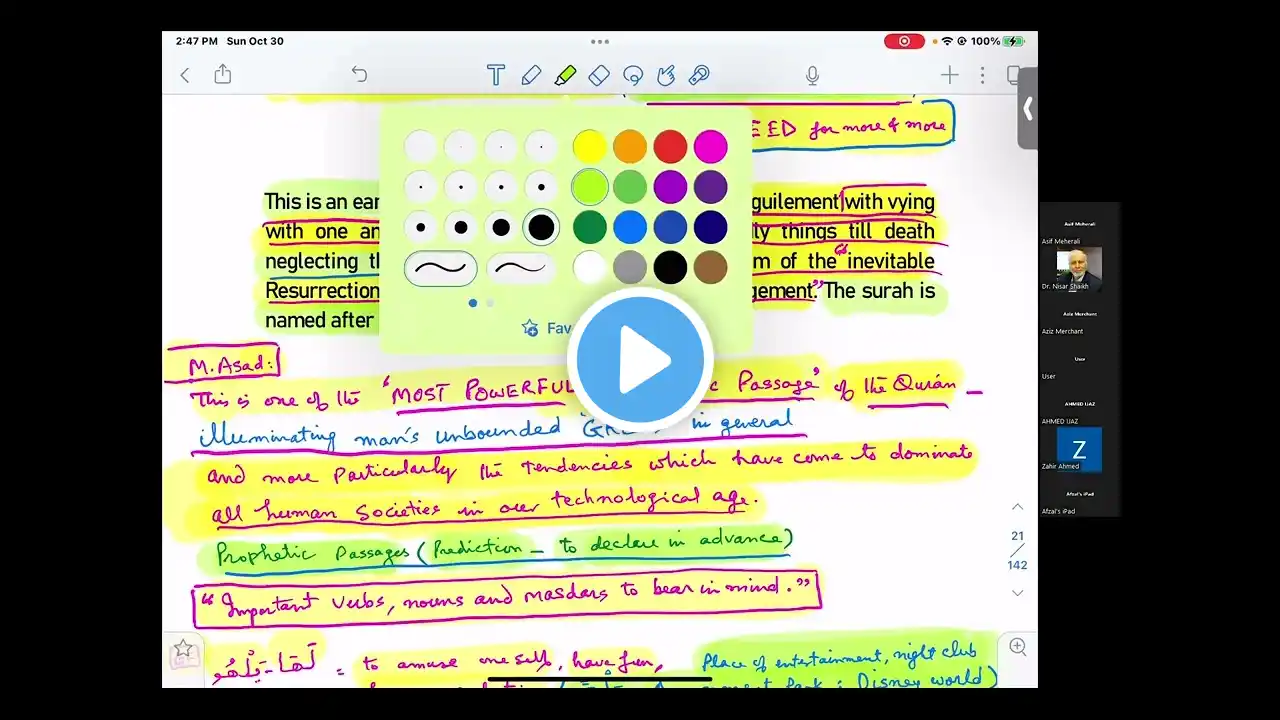 2:47 PM Sun Oct 30
100%
EED for more & more
This is an ear guilement with vying
with one an ly things till death
neglecting th m of the "inevitable
Resurrection gement." The surah is
named after
Fav
M. Asad:
This is one of the "MOST POWERFUL c Passage" of the Qurán –
illuminating man's unbounded in general
and more particularly the tendencies which have come to dominate
all human Societies in our technological age.
Prophetic Passages (Prediction – to declare in advance)
"Important verbs, nouns and masdars to bear in mind."
لَهَا - يَلْهُو = to amuse oneself, have fun, Place of entertainment, night club
Disney world)
21
142
Asif Meherali
Asif Meherali
Dr. Nisar Shaikh
Aziz Merchant
Aziz Merchant
User
User
AHMED IJAZ
AHMED IJAZ
Z
Zahir Ahmed
Afzal's iPad
Afzal's iPad